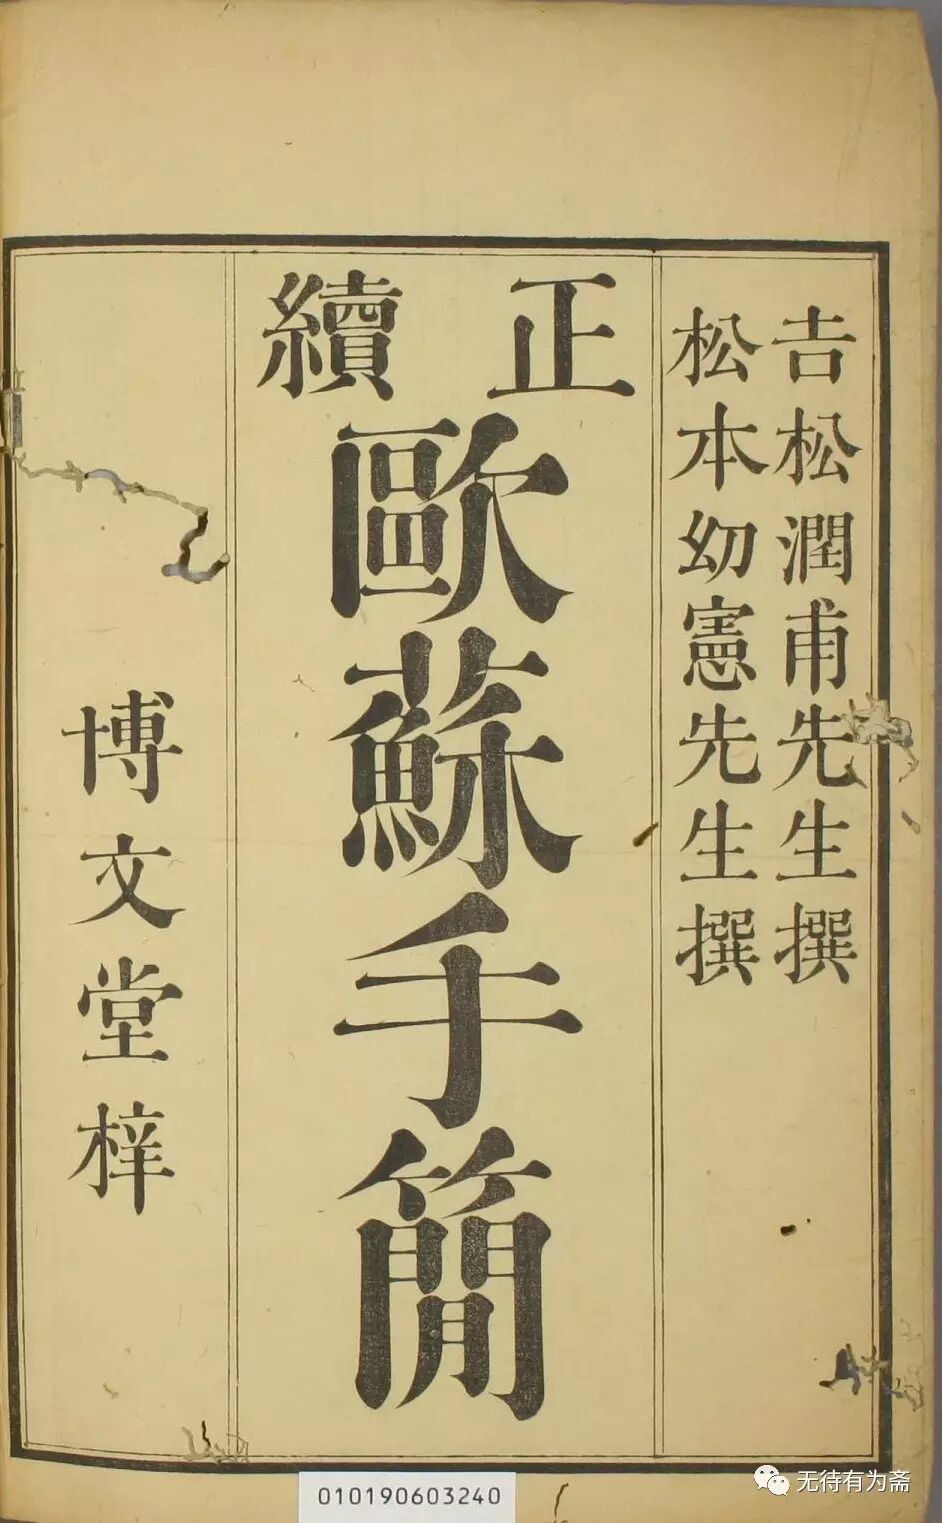 吉松潤甫先生撰
松本幼憲先生撰
正續
歐蘇手簡
博文堂梓
010190603240
无待有为斋